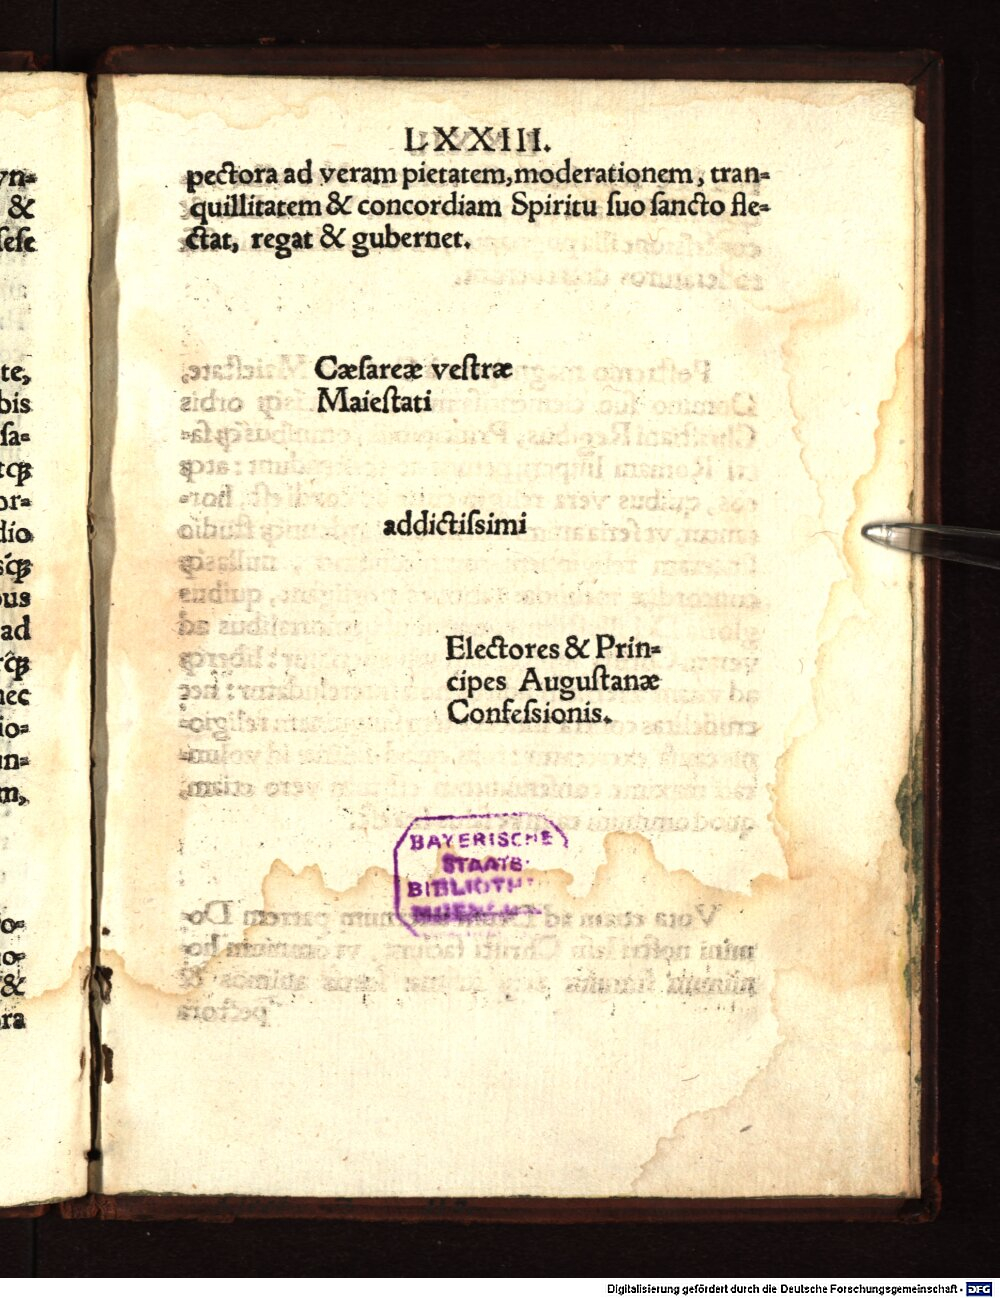 LXXIII.
pectora ad veram pietatem, moderationem, tran-
quillitatem & concordiam Spiritu suo sancto fle-
ctat, regat & gubernet.
Cæsareæ vestræ
Maiestati
addictissimi
Electores & Prin-
cipes Augustanæ
Confessionis.
BAYERISCHE
STAATS-
BIBLIOTHEK
MUENCHEN
yn-
&
sese
te,
bis
sa-
tqꝫ
or-
dio
sqꝫ
ous
ad
rqꝫ
nec
io-
un-
m,
o-
o-
&
ora
Digitalisierung gefördert durch die Deutsche Forschungsgemeinschaft - DFG